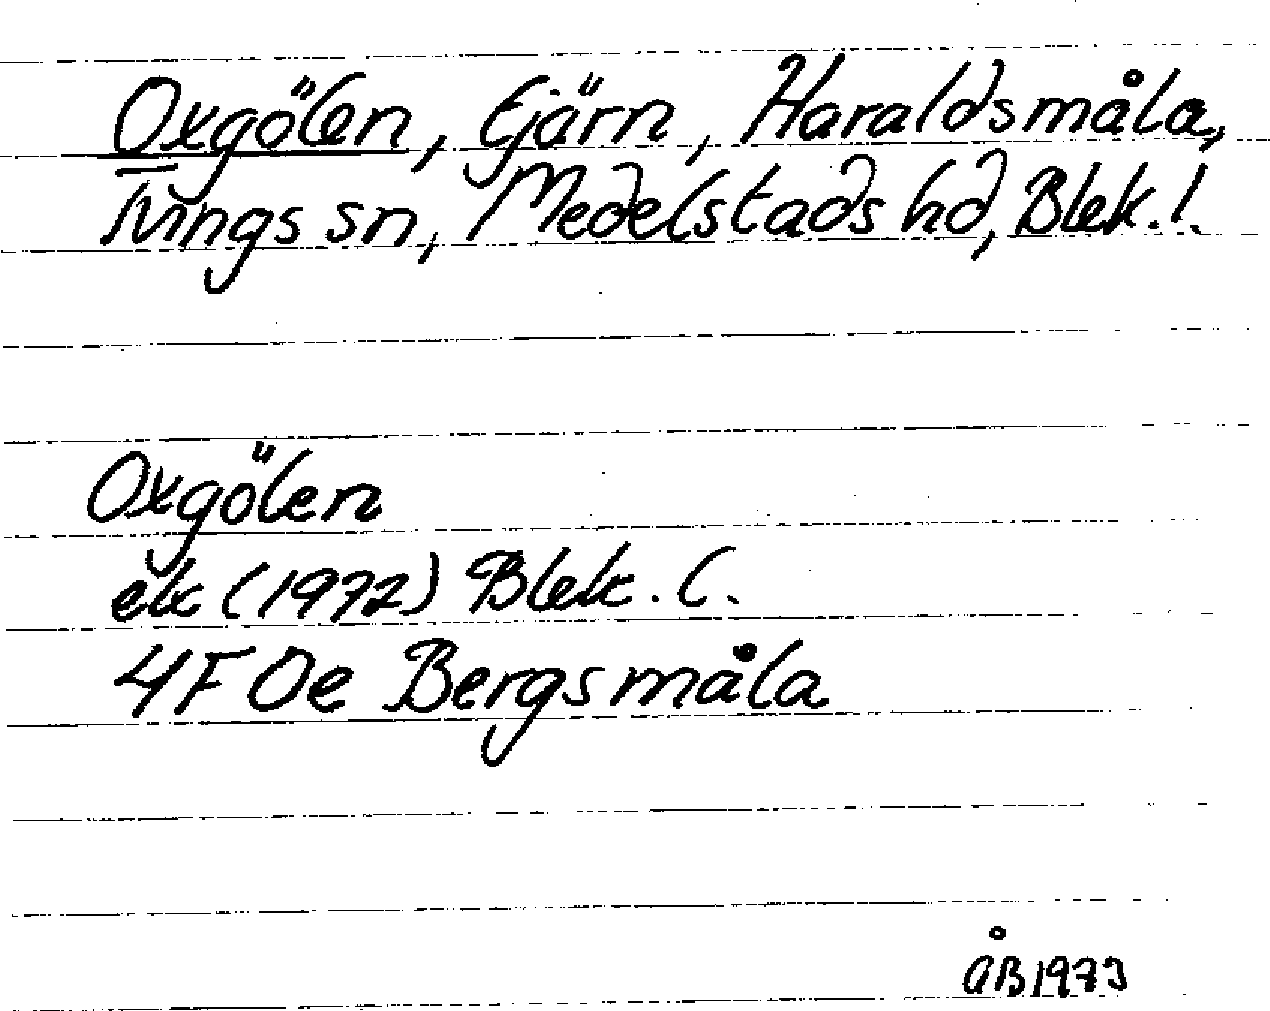 Oxgölen, tjärn, Haraldsmåla,
Tvings sn, Medelstads hd, Blek. l.
Oxgölen
ek (1972) Blek. l.
4F 0e Bergsmåla
ÅB 1973